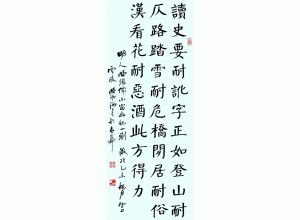 讀史要耐訛字正如登山耐
仄路踏雪耐危橋閒居耐俗
漢看花耐惡酒此方得力
明人陳繼儒小窗幽記一則